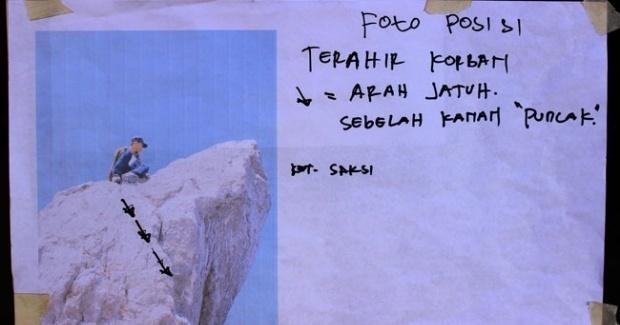 FOTO POSISI
TERAHIR KORBAN
↓ = ARAH JATUH.
SEBELAH KANAN "PUNCAK."
KET. SAKSI